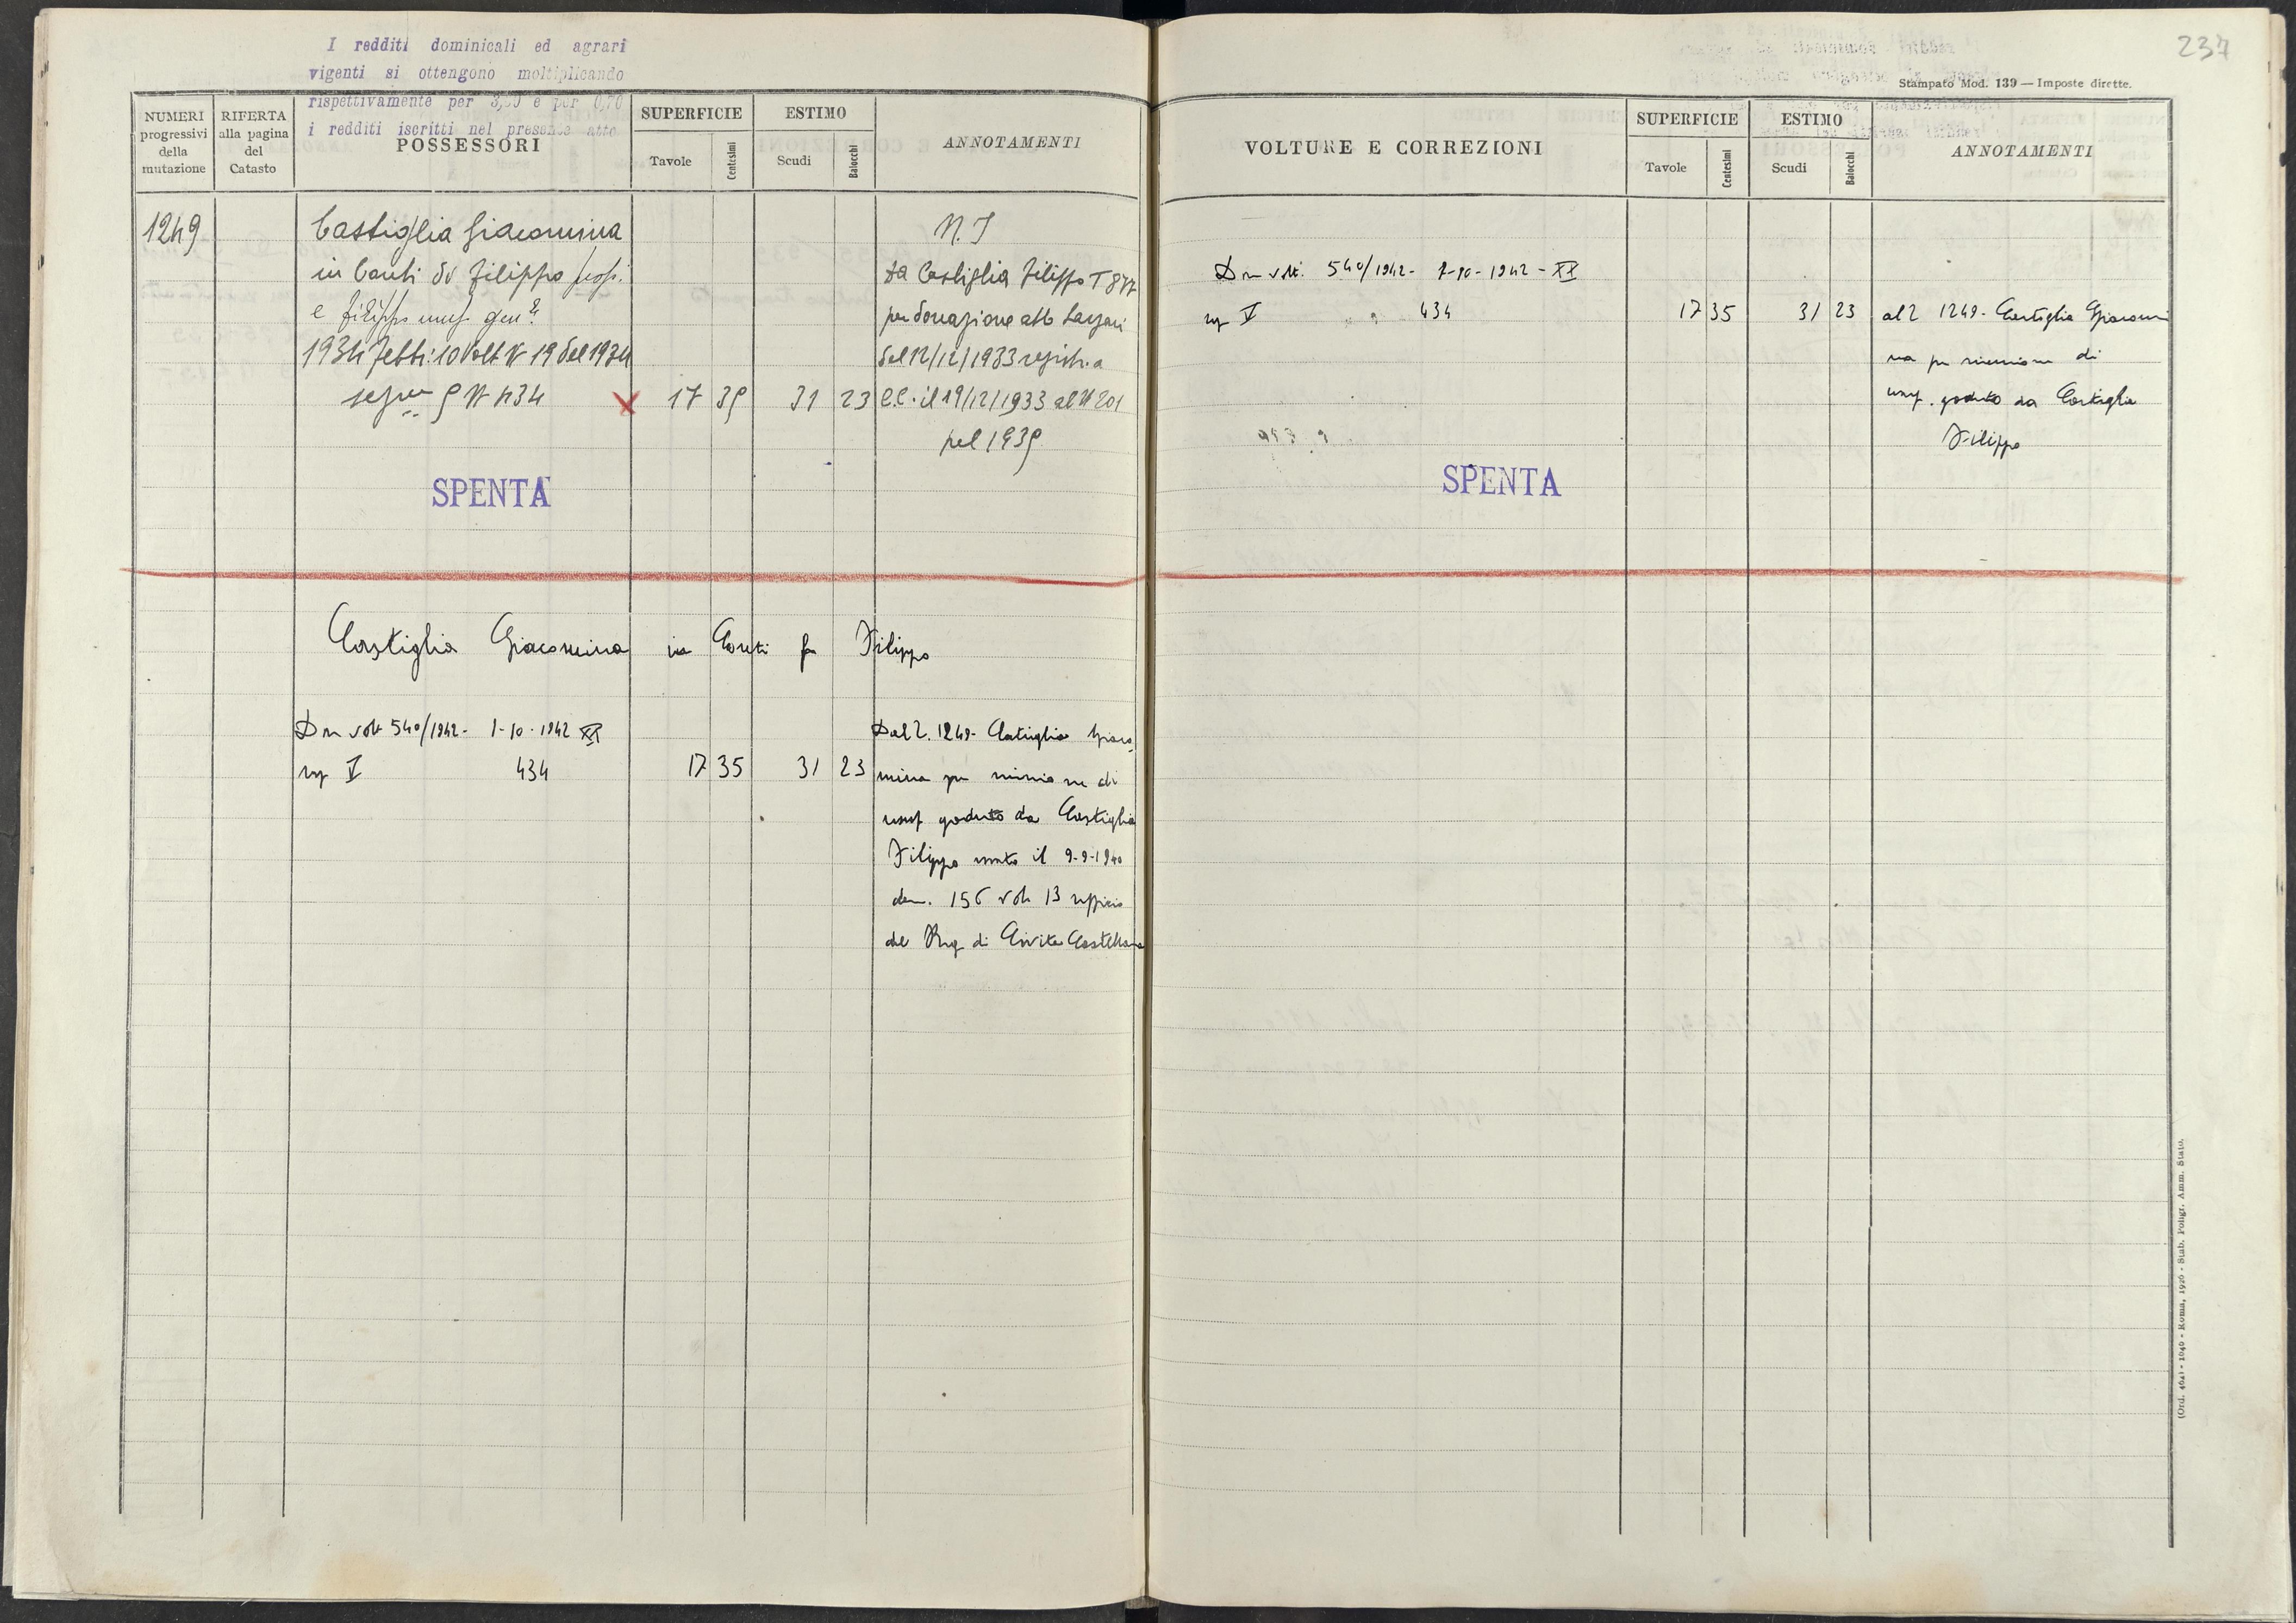 I redditi dominicali ed agrari
vigenti si ottengono moltiplicando
rispettivamente per 3,50 e per 0,70
i redditi iscritti nel presente atto
NUMERI progressivi della mutazione
RIFERTA alla pagina del Catasto
POSSESSORI
SUPERFICIE
Tavole Centesimi
ESTIMO
Scudi Baiocchi
ANNOTAMENTI
1249
Castiglia Giacomina
in Conti di Filippo
e Filippo usuf gen
1934 Febb: 10 Volt N 19 del 1934
N 434 17 35 31 23
N. I
da Castiglia Filippo T 877
per donazione atto Lazzari
del 12/12/1933 registr. a
C.C. il 19/12/1933 al N 201
pel 1935
SPENTA
Castiglia Giacomina in Conti fu Filippo
Dm volt 540/1942 - 1-10-1942 XX
V 434 17 35 31 23
Dal 2. 1249 - Castiglia Giaco
mina per riunione di
usuf goduto da Castiglia
Filippo morto il 9-9-1940
den. 156 vol. 13 ufficio
del Reg di Civita Castellana
237
Stampato Mod. 139 — Imposte dirette.
VOLTURE E CORREZIONI
SUPERFICIE
Tavole Centesimi
ESTIMO
Scudi Baiocchi
ANNOTAMENTI
Dm volt. 540/1942 - 1-10-1942 - XX
V 434 17 35 31 23
al 2 1249 - Castiglia Giacomi
na per riunione di
usuf. goduto da Castiglia
Filippo
SPENTA
(Ord. 464) - 1040 - Roma, 1926 - Stab. Poligr. Amm. Stato.